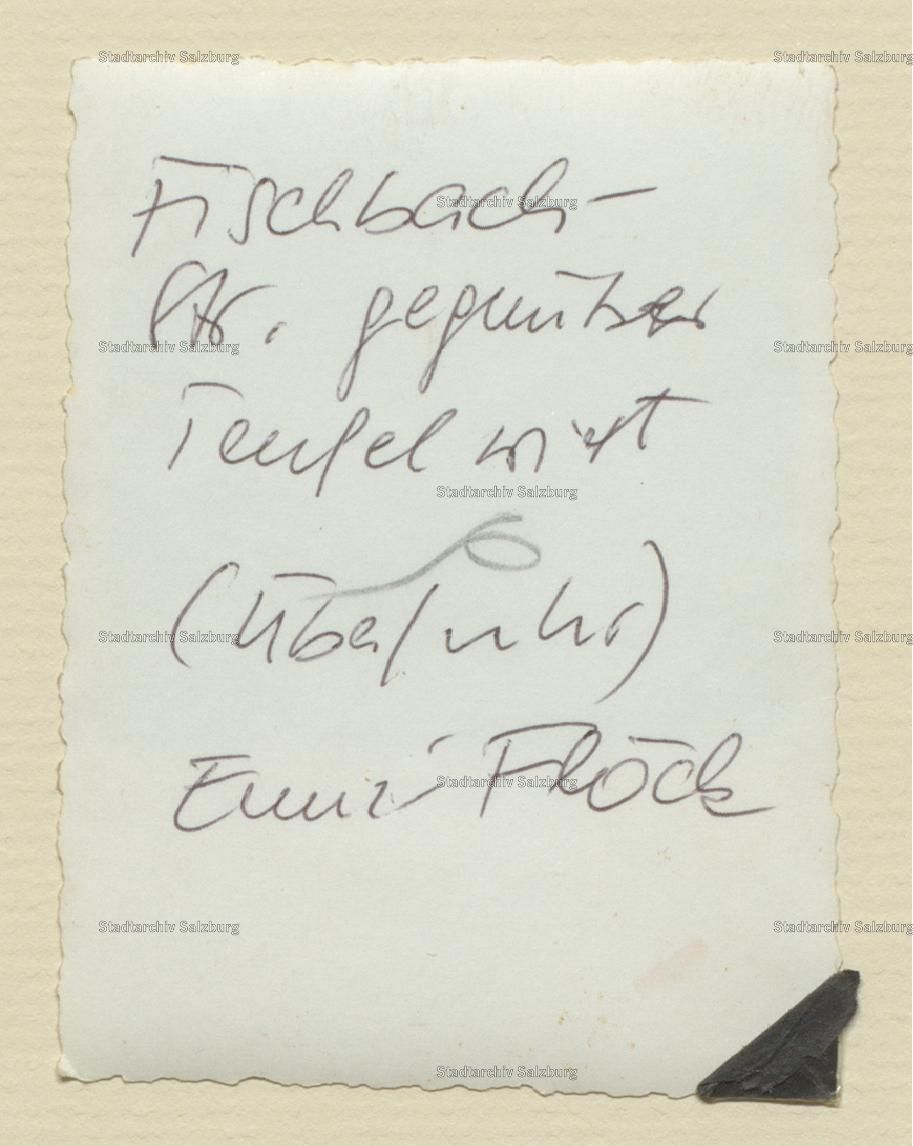 Stadtarchiv Salzburg Stadtarchiv Salzburg
Fischbach-
Stadtarchiv Salzburg
Str. gegenüber
Stadtarchiv Salzburg Stadtarchiv Salzburg
Teufelwirt
Stadtarchiv Salzburg
(Überfuhr)
Stadtarchiv Salzburg Stadtarchiv Salzburg
Emmi Flöck
Stadtarchiv Salzburg
Stadtarchiv Salzburg Stadtarchiv Salzburg
Stadtarchiv Salzburg